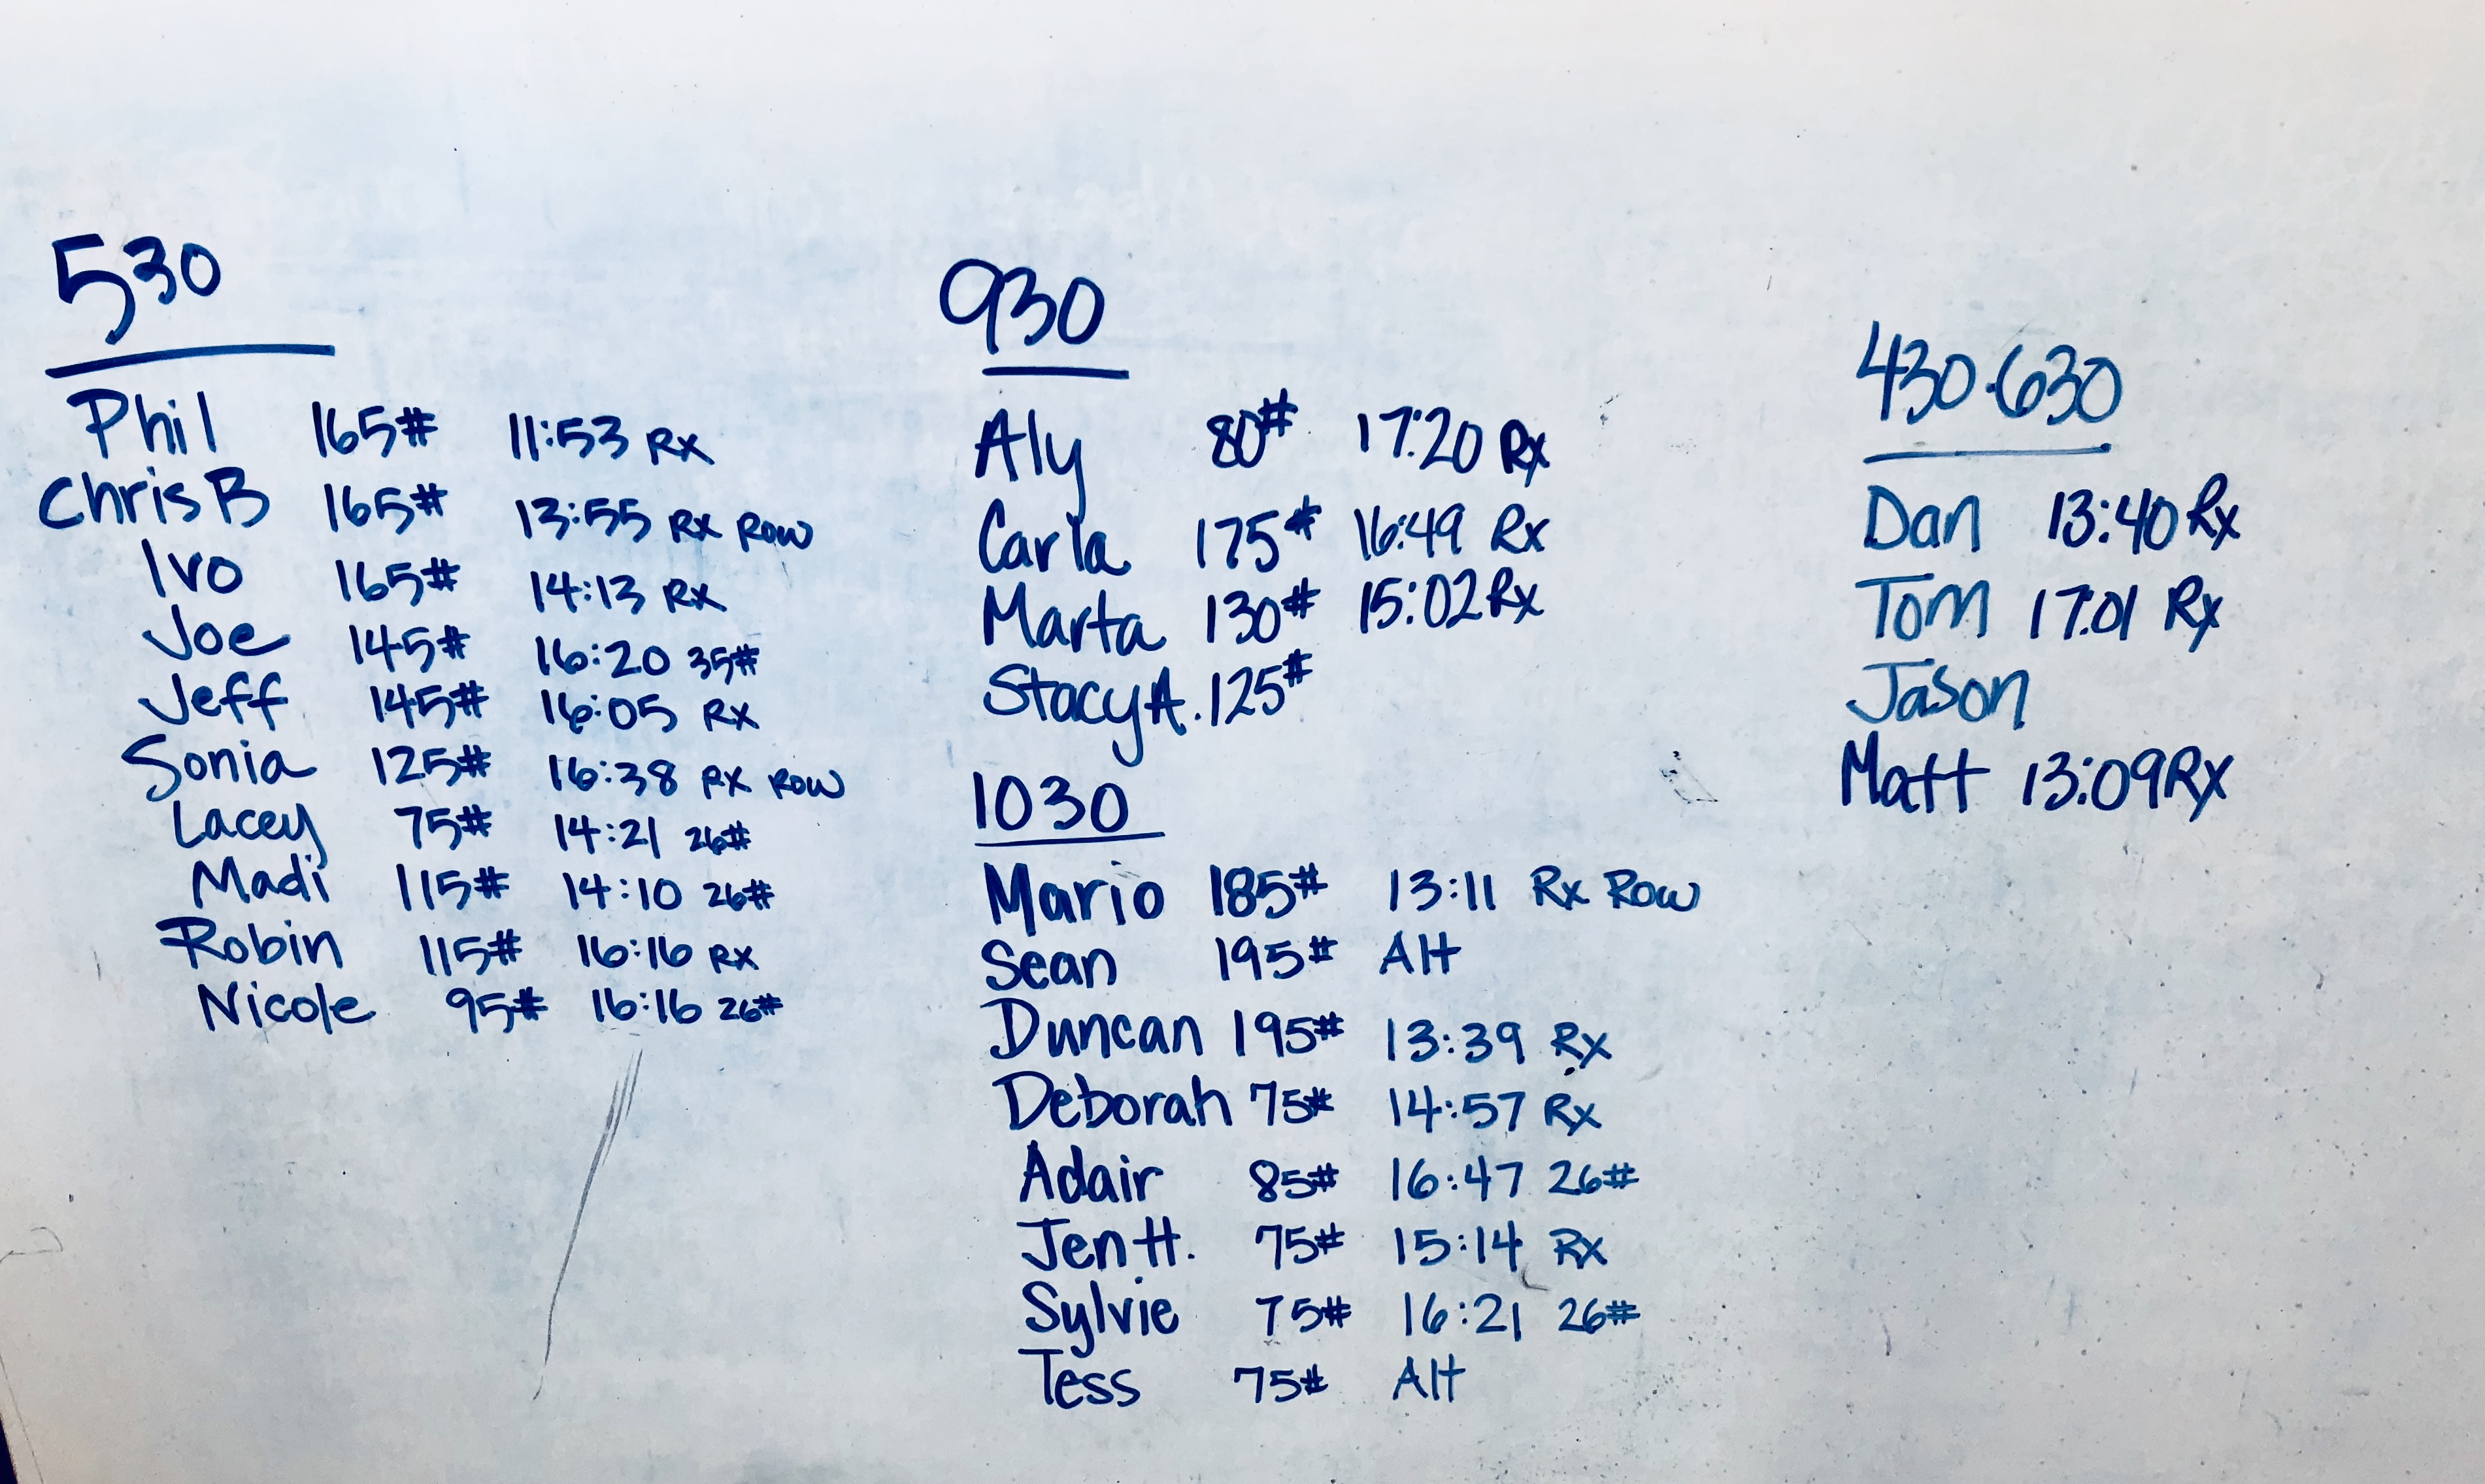 530
Phil 165# 11:53 Rx
Chris B 165# 13:55 Rx Row
Ivo 165# 14:13 Rx
Joe 145# 16:20 35#
Jeff 145# 16:05 Rx
Sonia 125# 16:38 Rx Row
Lacey 75# 14:21 26#
Madi 115# 14:10 26#
Robin 115# 16:16 Rx
Nicole 95# 16:16 26#
930
Aly 80# 17:20 Rx
Carla 175# 16:49 Rx
Marta 130# 15:02 Rx
Stacy A. 125#
1030
Mario 185# 13:11 Rx Row
Sean 195# Alt
Duncan 195# 13:39 Rx
Deborah 75# 14:57 Rx
Adair 85# 16:47 26#
Jen H. 75# 15:14 Rx
Sylvie 75# 16:21 26#
Tess 75# Alt
430·630
Dan 13:40 Rx
Tom 17:01 Rx
Jason
Matt 13:09 Rx